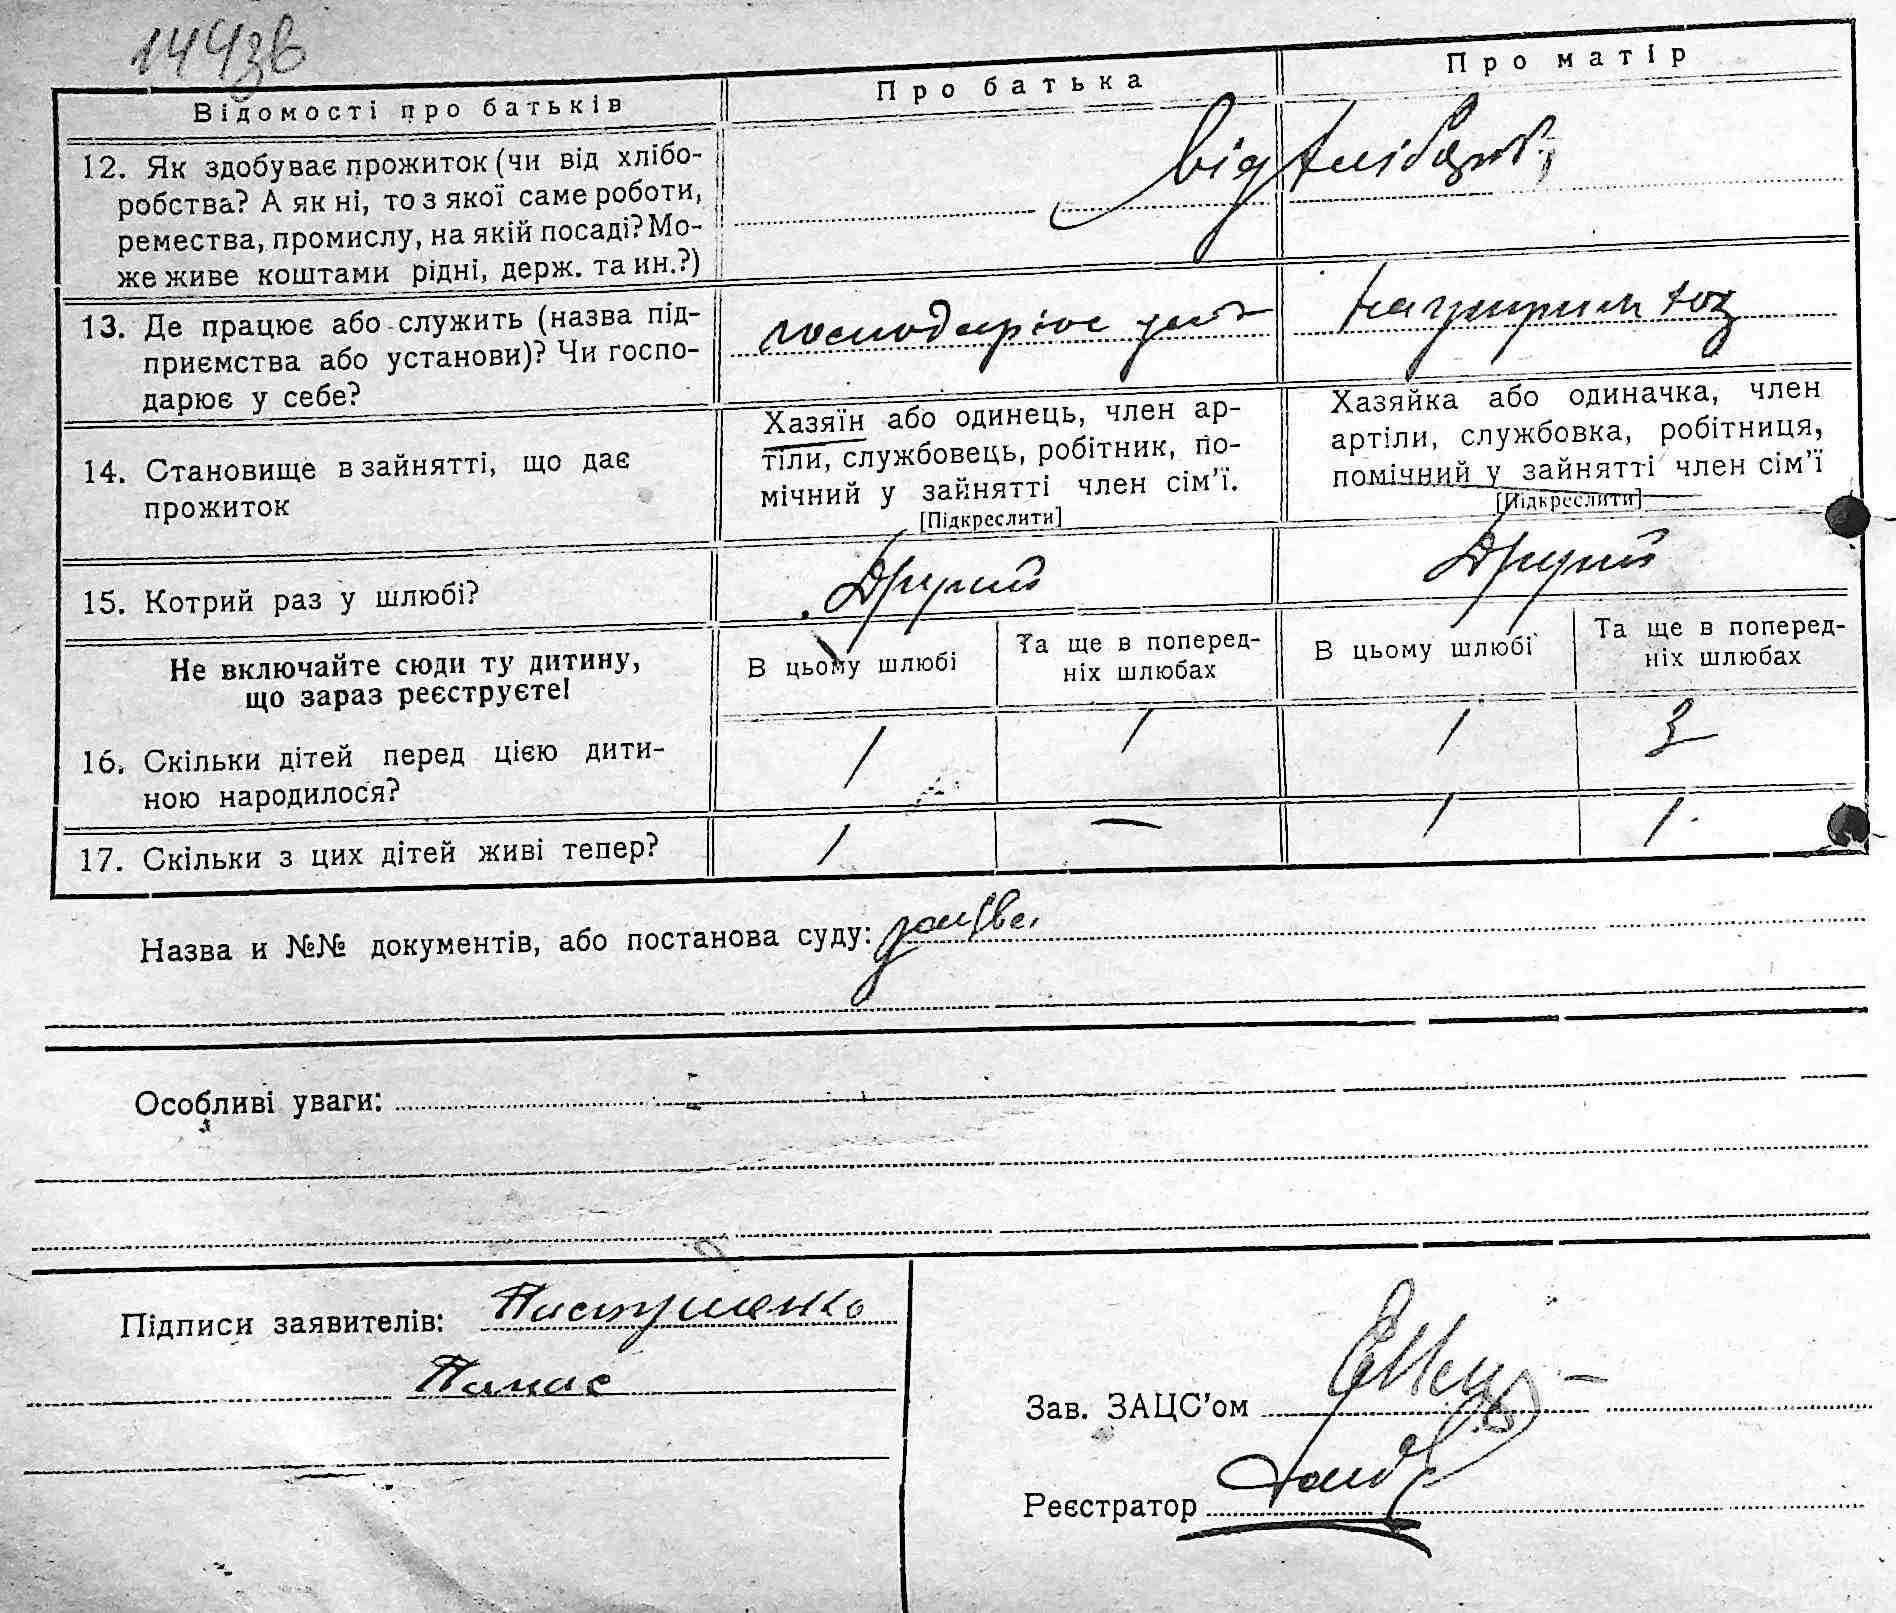 144зв
Відомості про батьків
Про батька
Про матір
12. Як здобуває прожиток (чи від хлібо-
робства? А як ні, то з якої саме роботи,
ремества, промислу, на якій посаді? Мо-
же живе коштами рідні, держ. та ин.?)
від хлібороб.
13. Де працює або служить (назва під-
приємства або установи)? Чи госпо-
дарює у себе?
господарює
14. Становище в зайнятті, що дає
прожиток
Хазяїн або одинець, член ар-
тіли, службовець, робітник, по-
мічний у зайнятті член сім'ї.
[Підкреслити]
Хазяйка або одиначка, член
артіли, службовка, робітниця,
помічний у зайнятті член сім'ї
[Підкреслити]
15. Котрий раз у шлюбі?
Другий
Другий
Не включайте сюди ту дитину,
що зараз реєструєте!
В цьому шлюбі
Та ще в поперед-
ніх шлюбах
В цьому шлюбі
Та ще в поперед-
ніх шлюбах
16. Скільки дітей перед цією дити-
ною народилося?
1 1 1 3
17. Скільки з цих дітей живі тепер?
1 — 1 1
Назва и №№ документів, або постанова суду:
Особливі уваги:
Підписи заявителів: Пастушенко
Панас
Зав. ЗАЦС'ом
Реєстратор